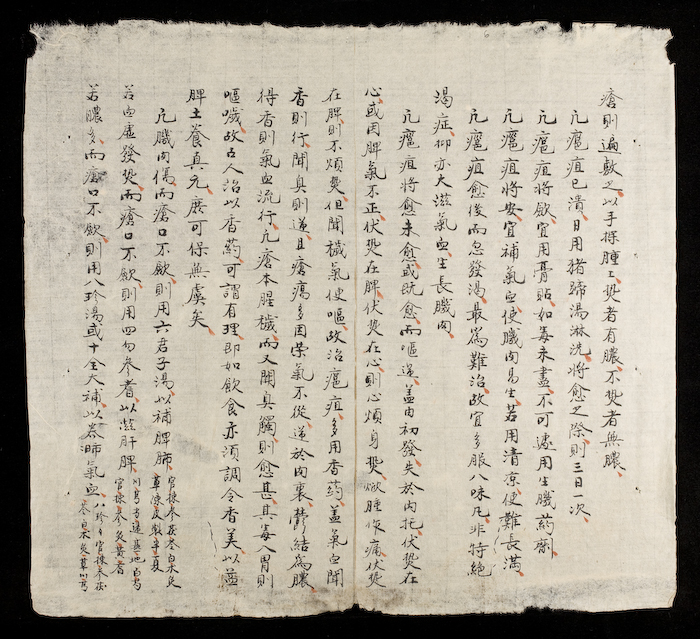 瘡則遍敷之以手探腫上熱者有膿不熱者無膿
凢癰疽已潰日用猪蹄湯淋洗將愈之際則三日一次
凢癰疽將歛宜用膏貼如毒未盡不可遽用生肌药䕷
凢癰疽將安宜補氣血使肌肉易生若用清凉使難長滿
凢癰疽愈後而忽發渴最爲難治故宜多服八味凡非特絕
渴症抑亦大滋氣血生長肌肉
凢癰疽將愈未愈或既愈而嘔逆盖由初發失於内托伏熱在
心或因脾氣不正伏熱在脾伏熱在心則心煩身熱㷔腫作痛伏熱
在脾則不煩熱但聞穢氣便嘔故治癰疽多用香药盖氣血聞
香則行聞臭則逆且瘡瘍多因荣氣不從逆於肉裏鬱結爲膿
得香則氣血流行凢瘡本腥穢而又聞臭觸則愈甚其毒入胃則
嘔噦故古人治以香药可謂有理即如飲食亦須調令香美以益
脾土養真元庶可保無虞矣
凢肌肉傷而瘡口不歛則用六君子湯以補脾肺 官揀参茯苓白术炙草陳皮製半夏
若血虛發熱而瘡口不歛則用四勿参耆以滋肝脾 川芎當歸熟地白芍官揀参炙黃耆
若膿多而瘡口不歛則用八珍湯或十全大補以养脾氣血 八珍官揀参茯苓白术炙草川芎